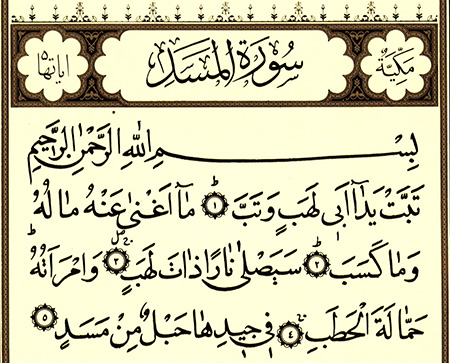 مكية سورة المسد اياتها ٥
بِسْمِ اللهِ الرَّحْمٰنِ الرَّحِيْمِ
تَبَّتْ يَدَآ اَبِيْ لَهَبٍ وَّتَبَّ ۝١ مَآ اَغْنٰى عَنْهُ مَالُهُ
وَمَا كَسَبَ ۝٢ سَيَصْلٰى نَارًا ذَاتَ لَهَبٍ ۝٣ وَامْرَاَتُهُ
حَمَّالَةَ الْحَطَبِ ۝٤ فِيْ جِيْدِهَا حَبْلٌ مِّنْ مَسَدٍ ۝٥